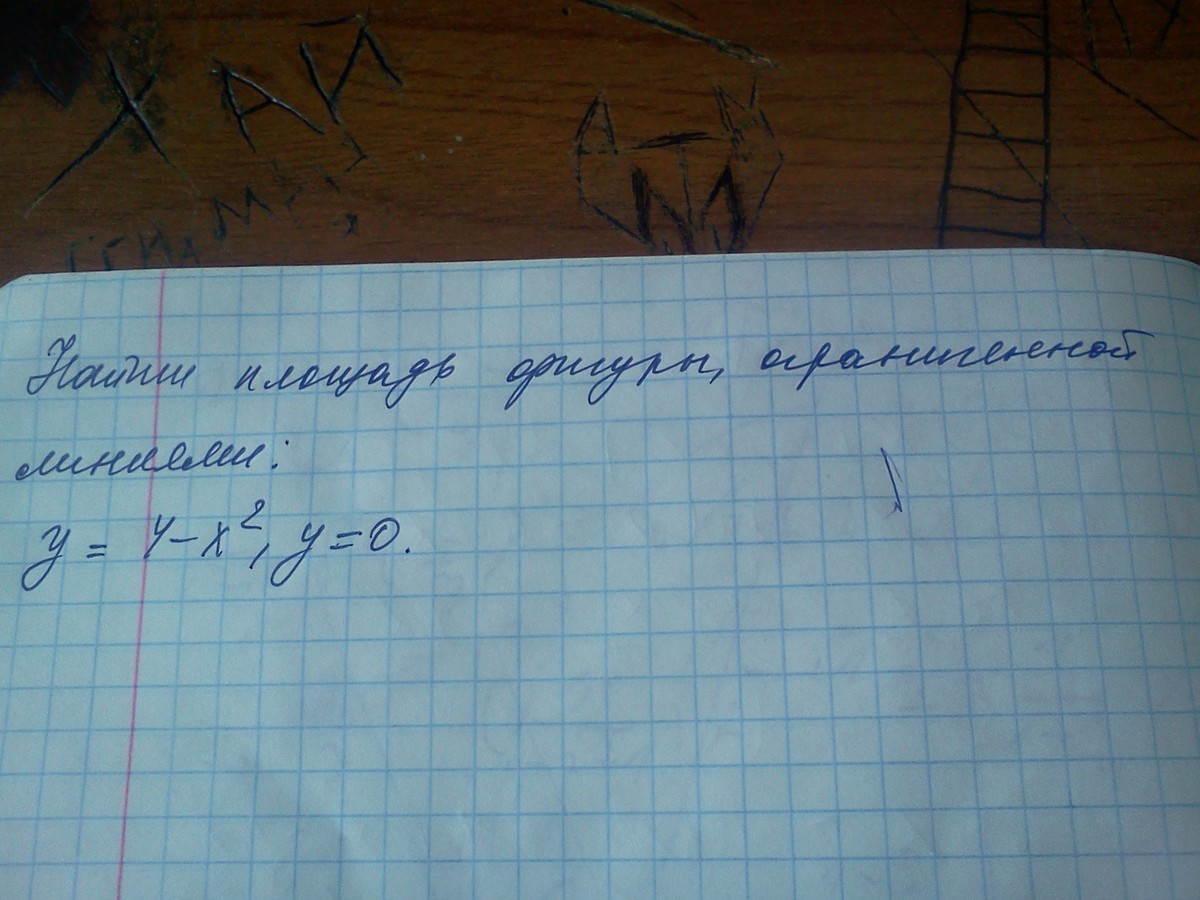 ХАЙ
Найти площадь фигуры, ограниченной
линиями:
y = 4-x², y=0.